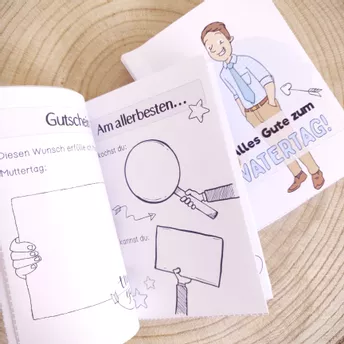 Gutschein
Diesen Wunsch erfülle ich
Muttertag:
Am allerbesten...
kochst du:
kannst du:
Alles Gute zum
VATERTAG!